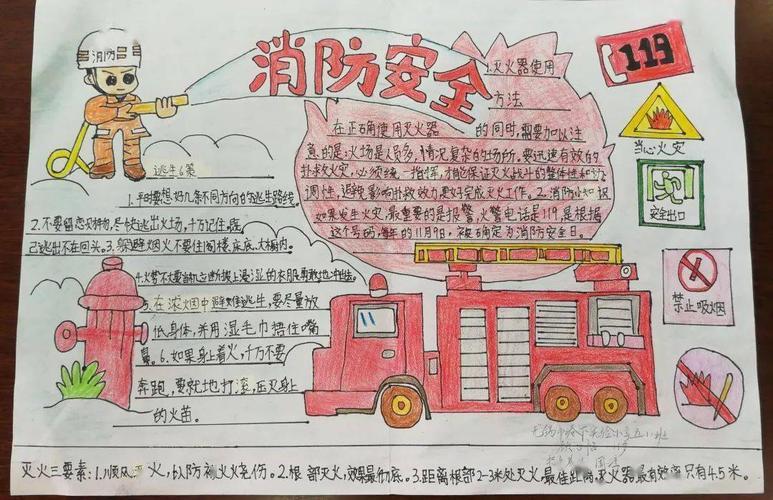 消防
消防安全
119
1.灭火器使用
方法
在正确使用灭火器 的同时,需要加以注
意的是:火场是人员多,情况复杂的场所,要迅速有效的
扑救火灾,必须统一指挥,才能保证灭火战斗的整体性和协
调性,避免影响扑救效力,更好完成灭火工作。2.消防小知识
如果发生火灾,最重要的是报警,火警电话是119,是根据
这个号码,每年的11月9日,被确定为消防安全日。
当心火灾
安全出口
禁止吸烟
逃生6策
1.平时要想好几条不同方向的逃生路线。
2.不要留恋财物,尽快逃出火场,千万记住,既
已逃出不在回头。3.躲避烟火不要往阁楼床底、大橱内。
4.火势不大要当机立断披上浸湿的衣服勇敢地冲出去。
5.在浓烟中避难逃生,要尽量放
低身体,并用湿毛巾捂住嘴
鼻。6.如果身上着火,千万不要
奔跑,要就地打滚,压灭身上
的火苗。
灭火三要素:1.顺风 火,以防被火烧伤。2.根部灭火,效果最彻底。3.距离根部2-3米处灭火,最佳距离,灭火器最有效离只有4.5米。